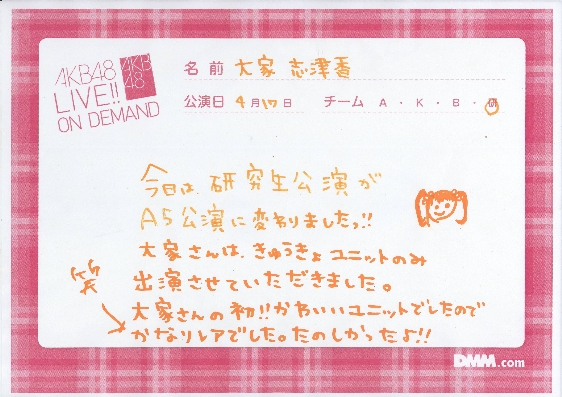 AKB48
LIVE!!
ON DEMAND
AKB
48
名前 大家 志津香
公演日 4月17日 チーム A・K・B・研
今日は、研究生公演が
A5公演に変わりましたっ!!
大家さんは、きゅうきょユニットのみ
出演させていただきました。
笑
大家さんの初!!かわいいユニットでしたので
かなりレアでした。たのしかったよ!!
DMM.com